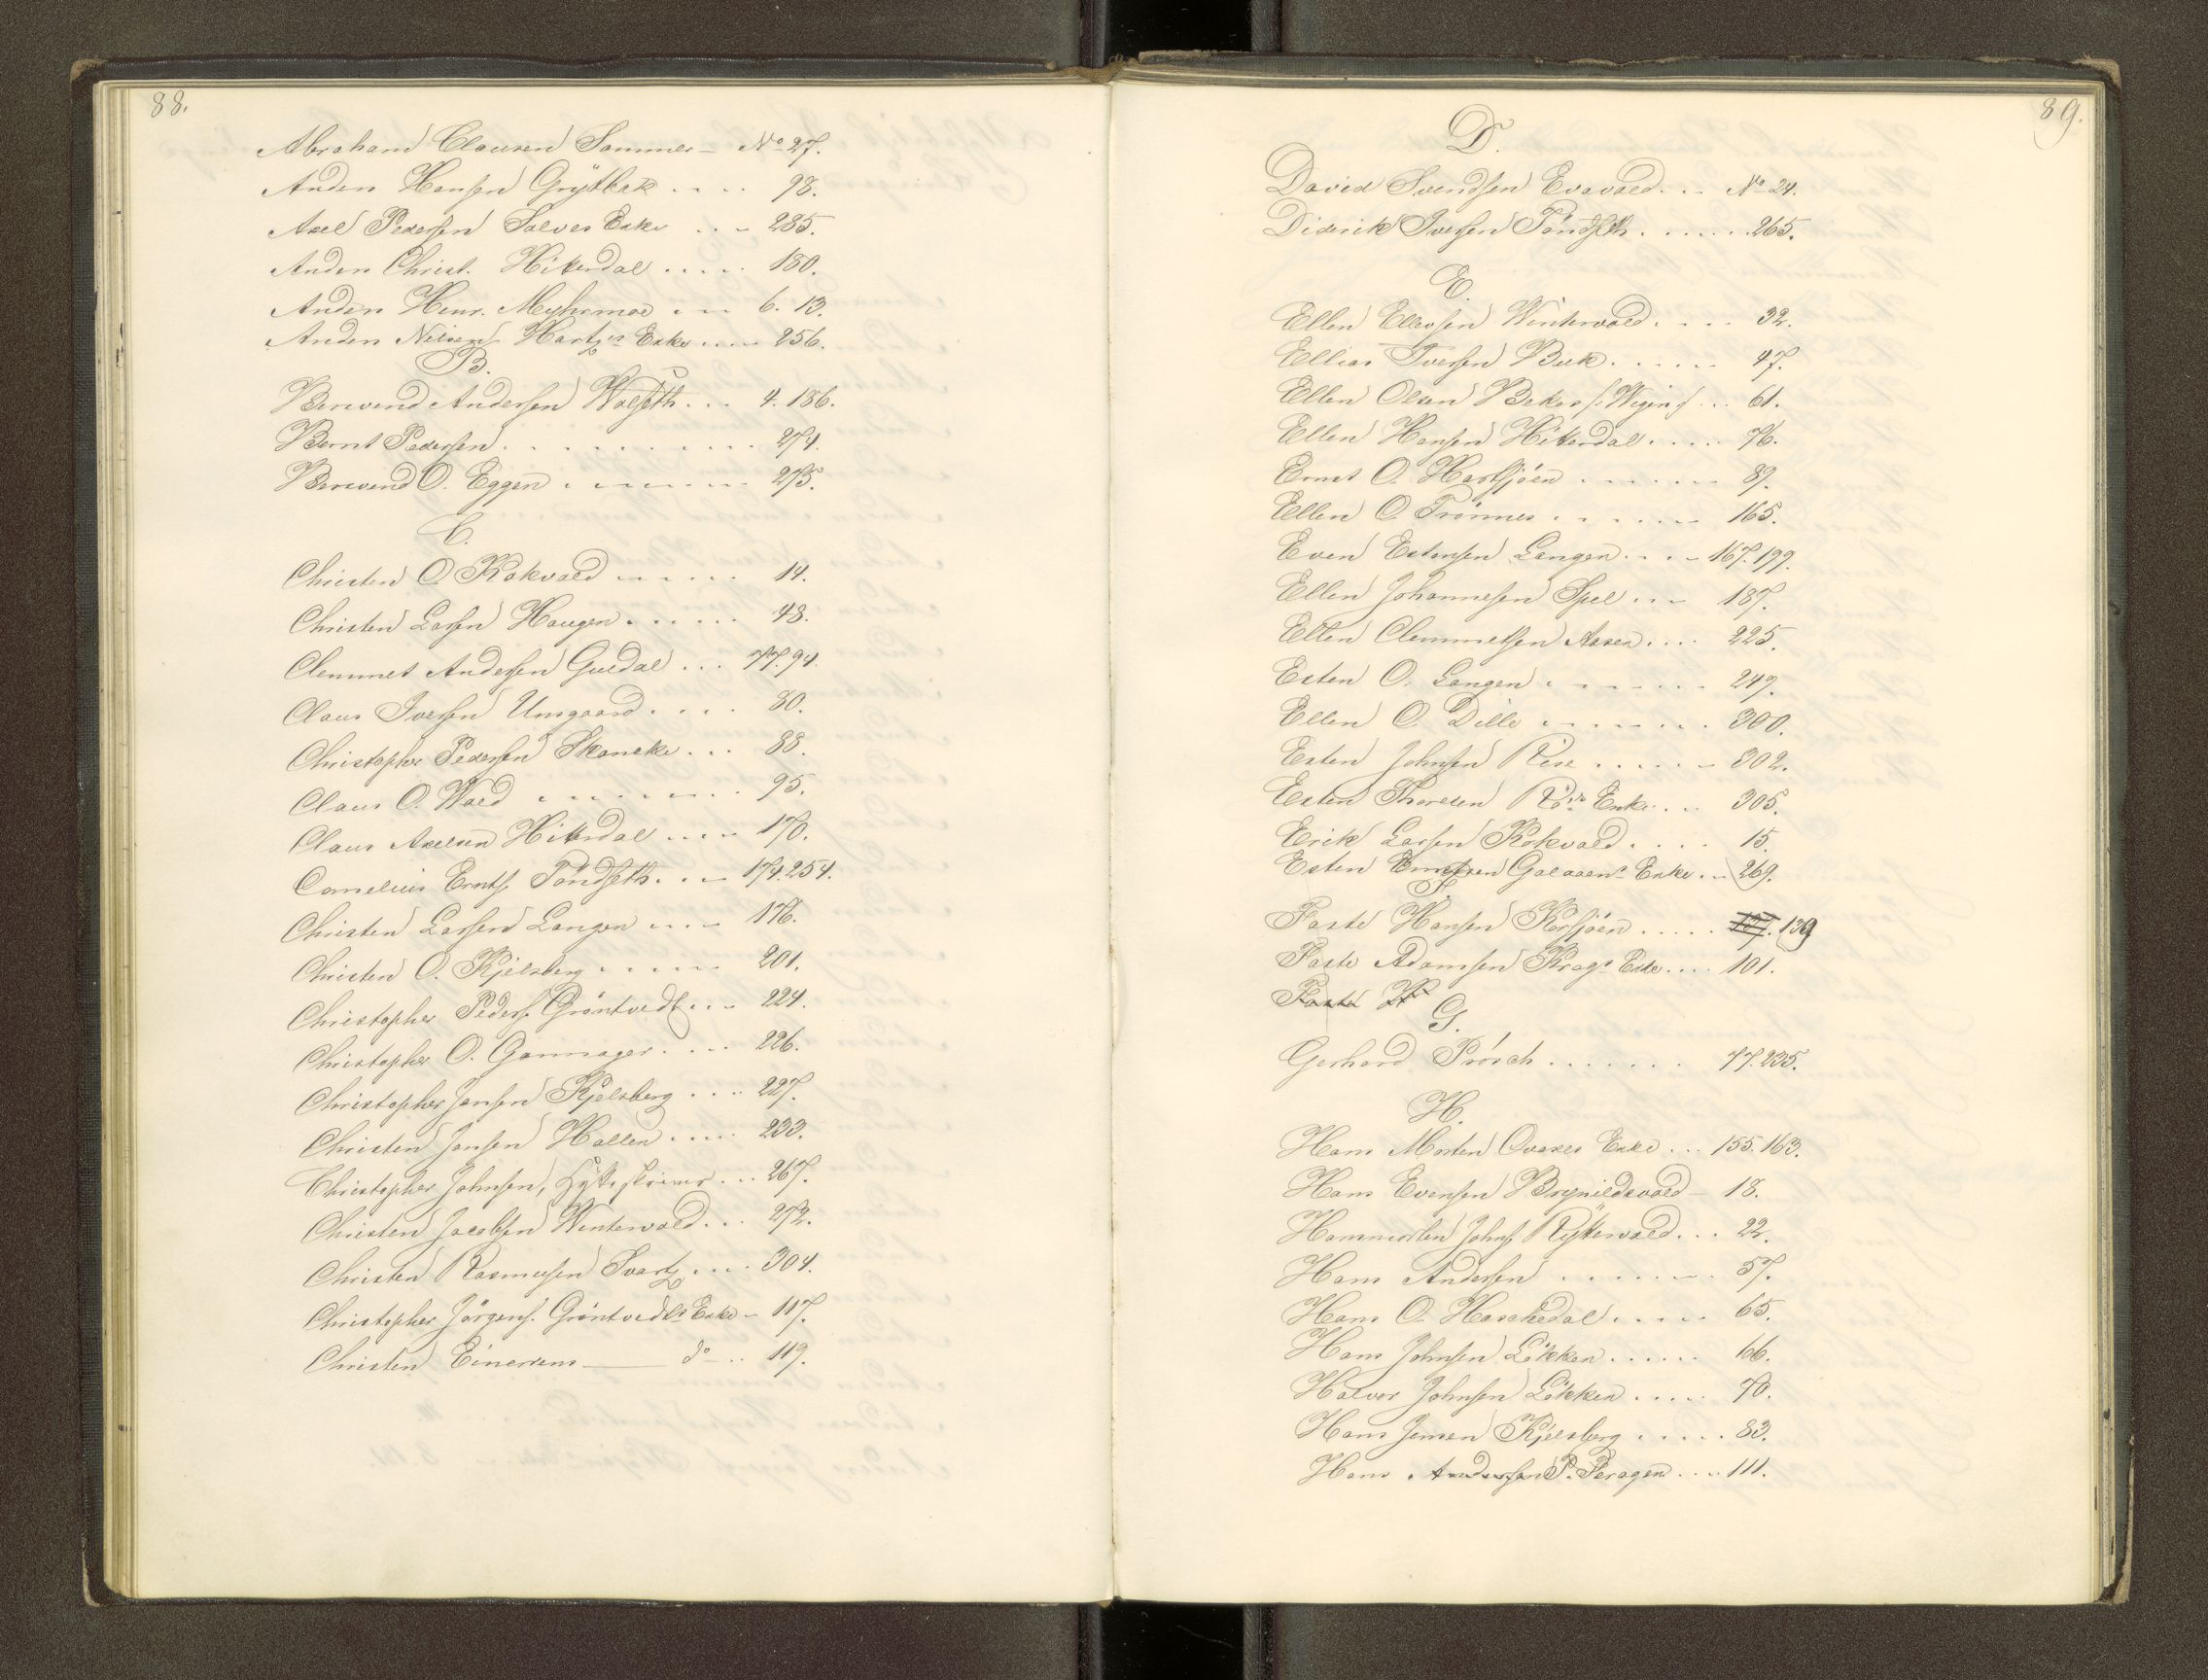 88.
Abraham Clausen Sommer - No 27.
Anders Hansen Grytbak .... 98.
Axel Pedersen Salves Enke ... 285.
Anders Christ. Hitterdal ..... 180.
Anders Henr. Myhrmoe ... 6. 13.
Anders Nilsens Hartz's Enke .... 256.
B.
Berwend Andersen Wolseth ... 4. 186.
Bernt Pedersen .......... 274.
Berwend O. Eggen ........ 275.
C.
Christen O. Kokvold ...... 14.
Christen Larsen Haugen ...... 48.
Clemmet Andersen Guldal ... 77. 94.
Claus Iversen Unsgaard .... 80.
Christopher Pedersen Skancke ... 88.
Claus O. Wold ........ 95.
Claus Axelsen Hitterdal .... 170.
Cornelius Ernts. Tøndseth ... 174. 254.
Christen Larsen Langen .... 176.
Christen O. Kjelsberg ...... 201.
Christopher Peders. Grøntvedt ... 224.
Christopher O. Gamnager .... 226.
Christopher Jensen Kjelsberg .... 227.
Christen Jensen Hallen .... 233.
Christopher Johnsen, Hytteskriver ... 267.
Christen Jacobsen Wintervold ... 272.
Christen Rasmusen Svartz .... 304.
Christopher Jørgens. Grøntvedts Enke - 117.
Christen Einersens —— do .. 119.
89.
D.
David Svendsen Evavold ... No 24.
Diderik Iversen Tøndseth ...... 265.
E.
Ellen Ellevsen Wintervold .... 32.
Ellias Iversen Bek ...... 47.
Ellen Olsen Bekos (: Wigen :) .. 61.
Ellen Hansen Hitterdal .... 76.
Ernst O. Harsjøen ....... 89.
Ellen O. Trønnes ....... 165.
Even Estensen Langen .... 167. 199.
Ellen Johannesen Spel ... 187.
Ellen Clemmetsen Aasen .... 225.
Esten O. Langen ....... 249.
Ellen O. Dille ....... 300.
Esten Johnsen Rise ...... 302.
Esten Thoresen Rø's Enke ... 305.
Erik Larsen Kokvold .... 15.
Esten Galaaens Enke .. 269.
F.
Faste Hansen Korsjøen ..... 139
Faste Adamsen Krogs Enke .... 101.
Faste H
G.
Gerhard Prøsch ....... 77. 235.
H.
Hans Morten Ovares Enke ... 155. 163.
Hans Evensen Brynildsvold - 18.
Hansmorten Johns. Ryttervold ... 22.
Hans Andersen ....... 57.
Hans O. Haschedal ..... 65.
Hans Johnsen Løkken ...... 66.
Halvor Johnsen Løkken ..... 70.
Hans Jensen Kjelsberg ..... 83.
Hans Andersen P. Feragen .... 111.